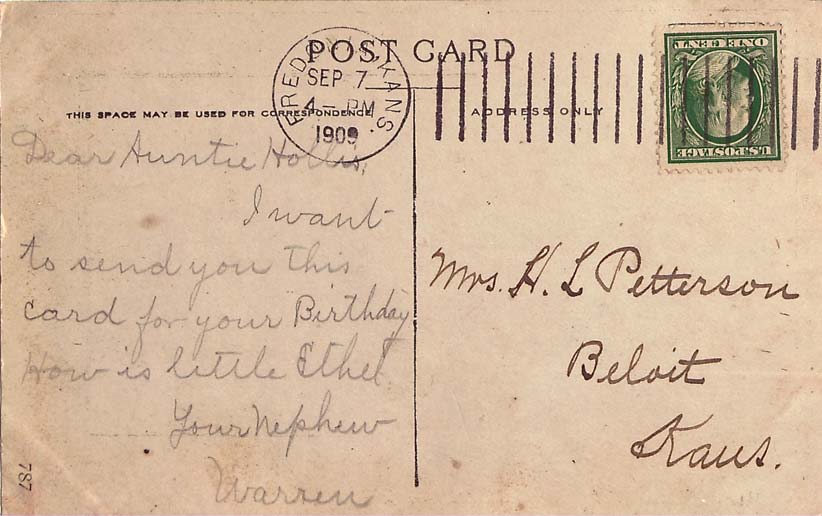 POST CARD
FREDONIA KANS.
SEP 7
4 - PM
1909
THIS SPACE MAY BE USED FOR CORRESPONDENCE
ADDRESS ONLY
ONE CENT
U.S. POSTAGE
Dear Auntie Hollis,
I want
to send you this
card for your Birthday
How is little Ethel
Your Nephew
Warren
Mrs. H. L Petterson
Beloit
Kans.
787